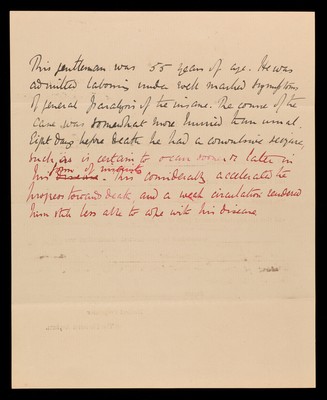 This gentleman was 55 years of age. He was
admitted labouring under well marked symptoms
of general Paralysis of the insane. The course of the
Case was somewhat more hurried than usual.
Eight days before death he had a convulsive seizure,
such as is certain to occur sooner or later in
form of insanity
his disease. This considerably accelerated the
progress towards death, and a weak circulation rendered
him still less able to cope with his disease